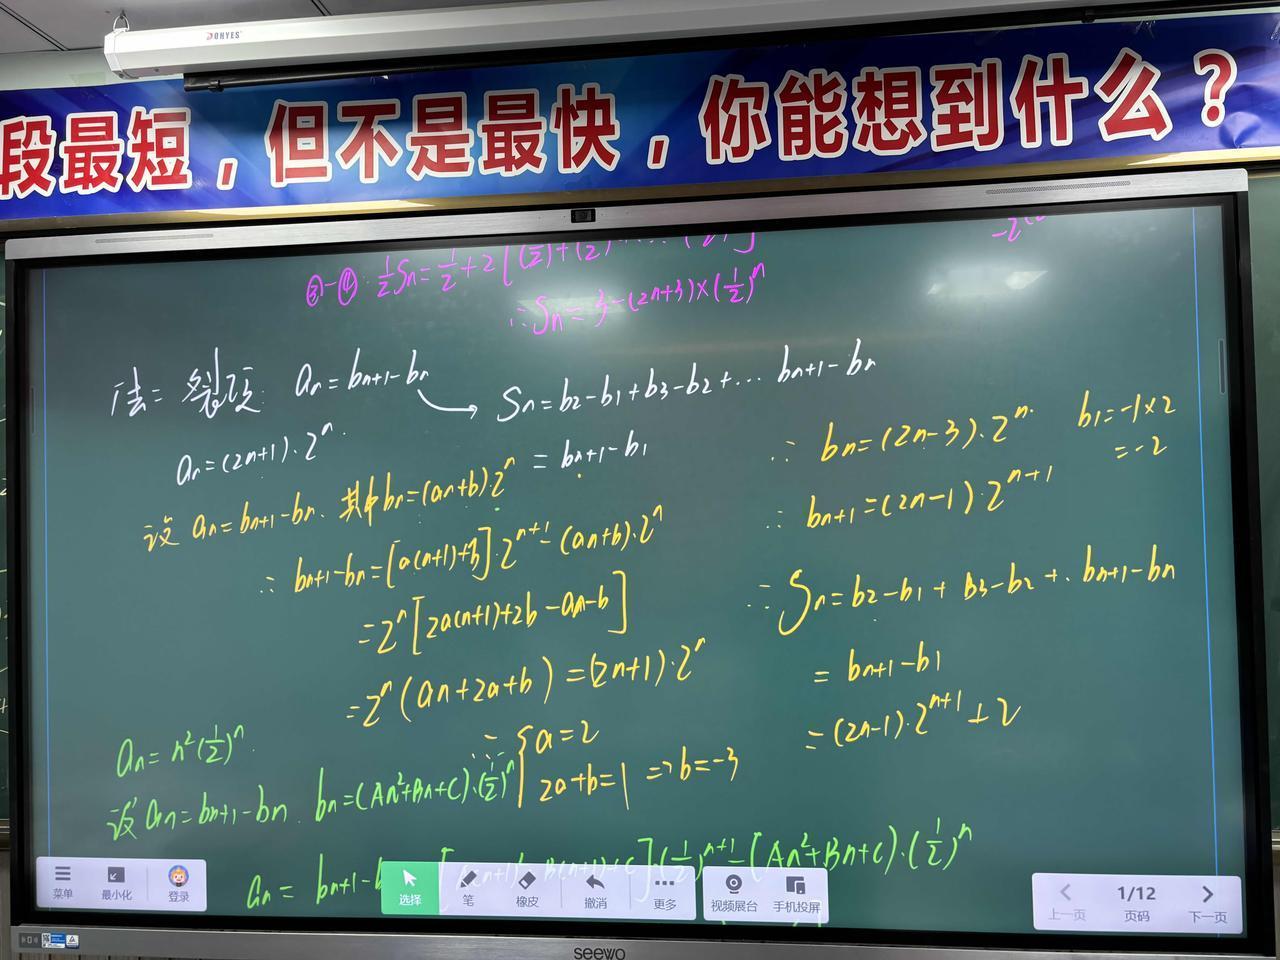 DOHYES
段最短，但不是最快，你能想到什么？
③-④: ½Sn=½+2[(½)+(½)
∴Sn=3-(2n+3)×(½)ⁿ
法二 裂项: an=bn+1-bn → Sn=b2-b1+b3-b2+… bn+1-bn
an=(2n+1)·2ⁿ
=bn+1-b1
设 an=bn+1-bn. 其中bn=(an+b)·2ⁿ
∴ bn+1-bn=[a(n+1)+b]·2ⁿ⁺¹-(an+b)·2ⁿ
=2ⁿ[2a(n+1)+2b-an-b]
=2ⁿ(an+2a+b)=(2n+1)·2ⁿ
∴ {a=2
2a+b=1 ⇒b=-3
∴ bn=(2n-3)·2ⁿ b1=-1×2
=-2
∴ bn+1=(2n-1)·2ⁿ⁺¹
∴ Sn=b2-b1+B3-b2+..bn+1-bn
=bn+1-b1
=(2n-1)·2ⁿ⁺¹+2
an=n²(½)ⁿ.
设an=bn+1-bn. bn=(An²+Bn+C)·(½)ⁿ
an= bn+1-b (½)ⁿ⁺¹-(An²+Bn+C)·(½)ⁿ
菜单 最小化 登录
选择 笔 橡皮 撤消 更多
视频展台 手机投屏
上一页 1/12 页码 下一页
seewo